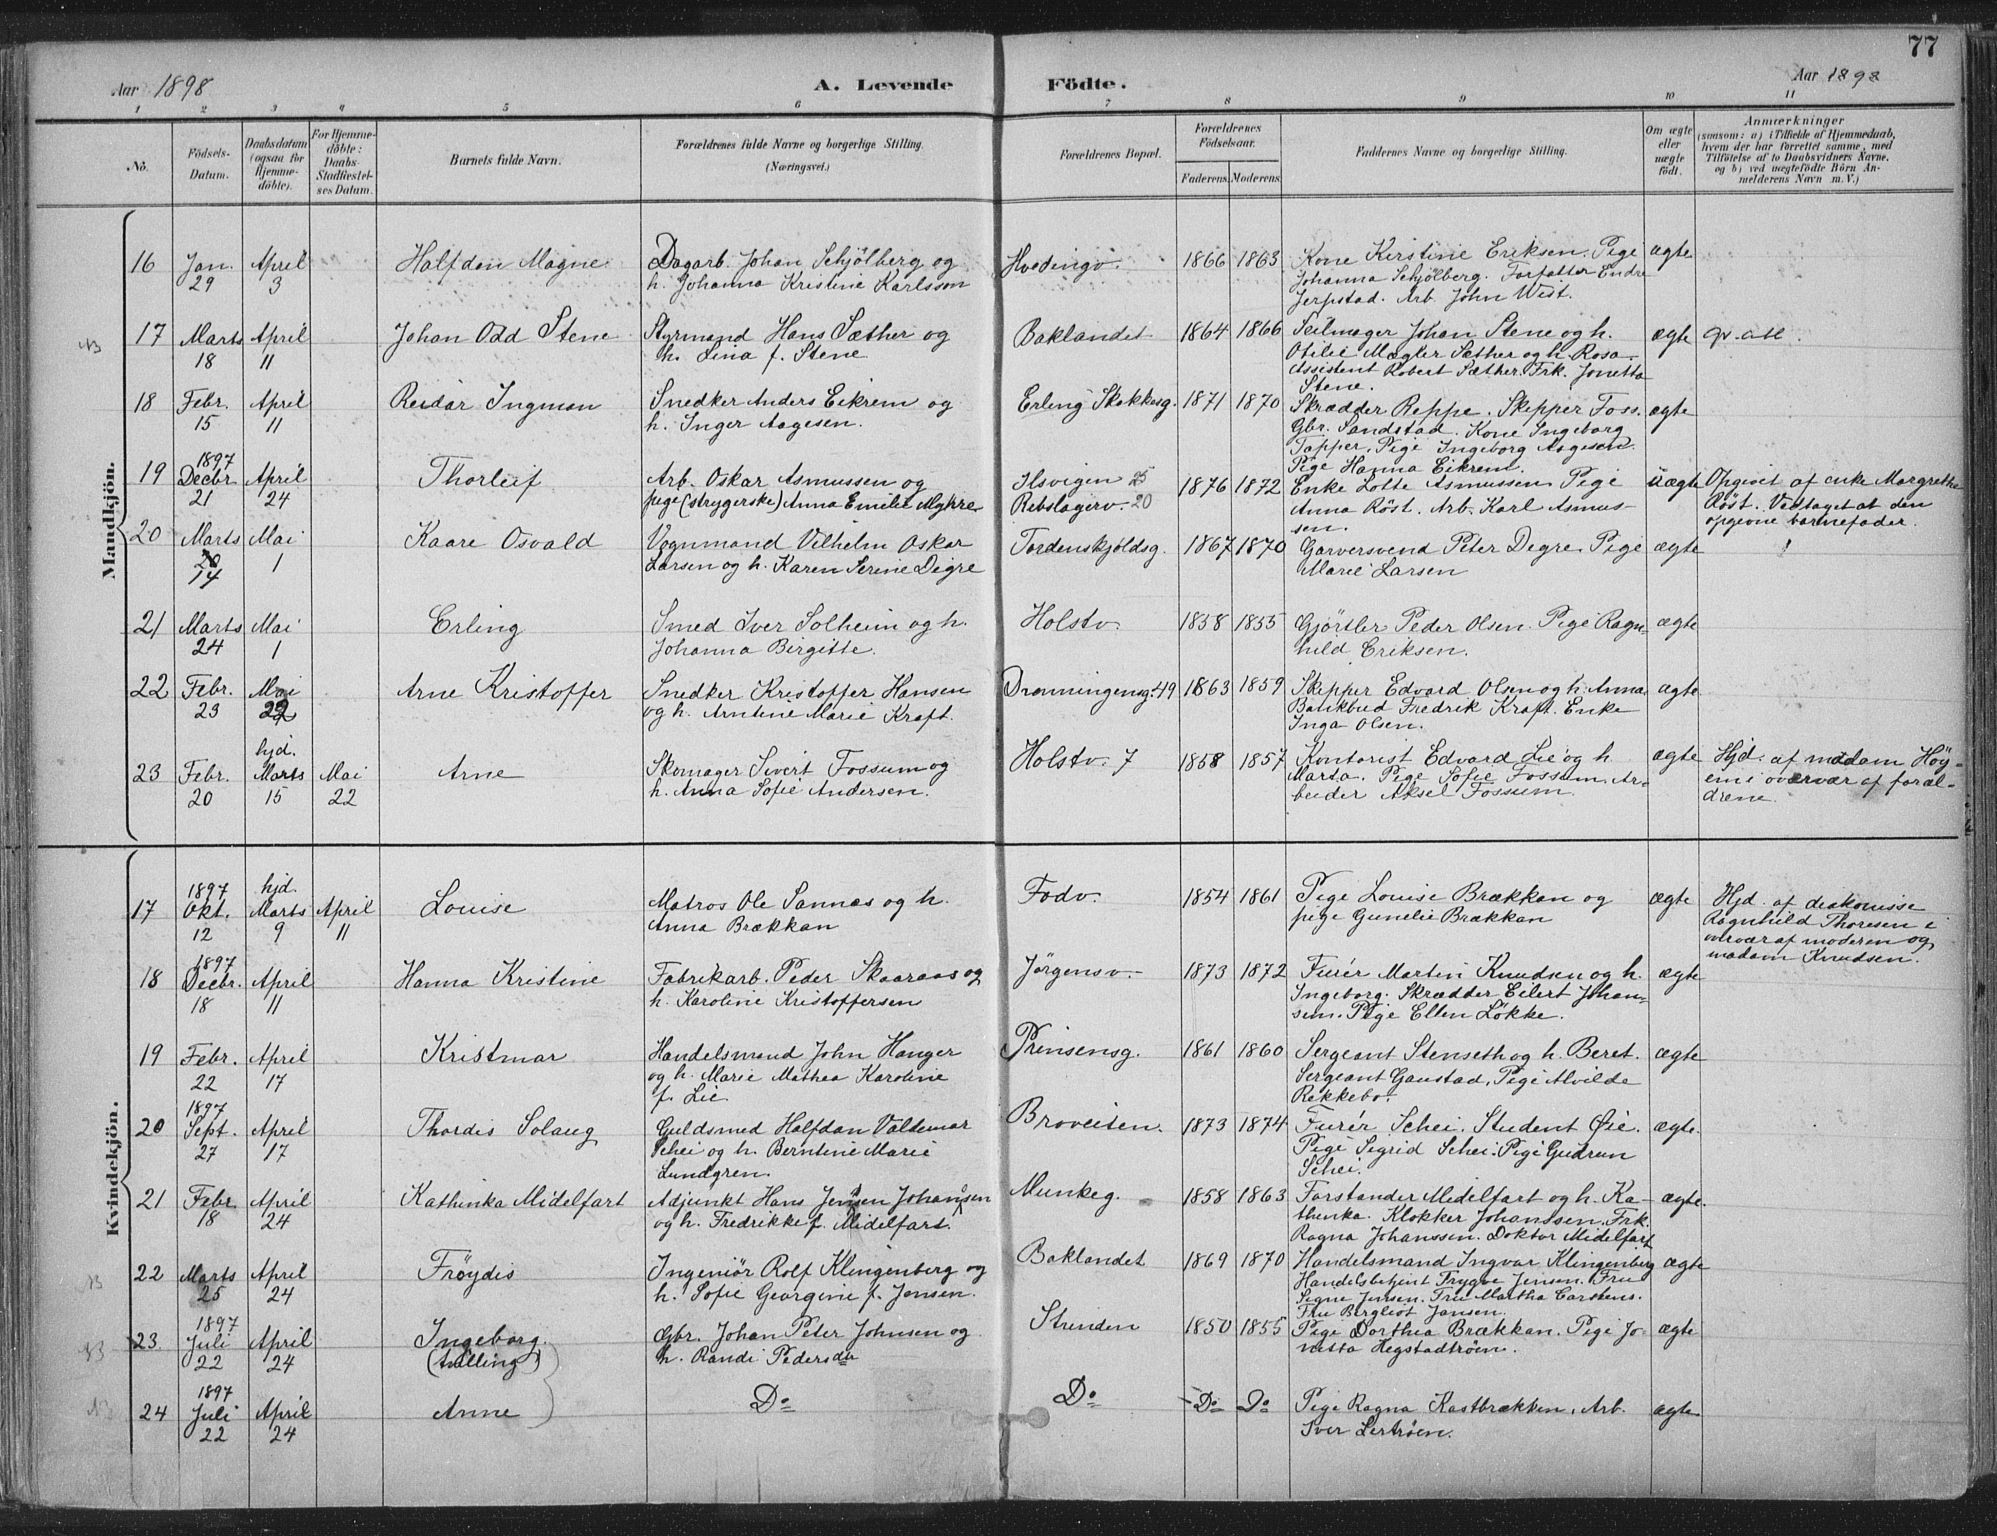 77
Aar 1898
A. Levende
Födte.
Aar 1898
1 2 3 4 5 6 7 8 9 10 11
No.
Födsels-Datum.
Daabsdatum (ogsaa for Hjemme-döbte).
For Hjemme-döbte: Daabs-Stadfæstel-ses Datum.
Barnets fulde Navn.
Forældrenes fulde Navne og borgerlige Stilling. (Næringsvei.)
Forældrenes Bopæl.
Forældrenes Födselsaar.
Faderens. Moderens.
Faddernes Navne og borgerlige Stilling.
Om ægte eller uægte födt.
Anmærkninger
(saasom: a) i Tilfælde af Hjemmedaab,
hvem der har forrettet samme, med
Tilföielse af to Daabsvidners Navne.
og b) ved uægtefödte Börn An-
melderens Navn m. V.)
Mandkjön.
16 Jan. 29 April 3 Halfdan Magne Dagarb. Johan Schjölberg og h. Johanna Kristine Karlsson Hvedingv. 1866 1863 Kone Kirstine Eriksen. Pige Johanna Schjölberg. Forfatter Endre Jerpstad. Arb. John West. ægte
17 Marts 18 April 11 Johan Odd Stene Styrmand Hans Sæther og h. Lina f. Stene Baklandet 1864 1866 Seilmager Johan Stene og h. Otilie Mægler Sæther og h. Rosa. Assistent Robert Sæther. Frk. Jonetta Stene. ægte
18 Febr. 15 April 11 Reidar Ingman Snedker Anders Eikrem og h. Inger Aagesen. Erling Skakkesg. 1871 1870 Skrædder Reppe. Skipper Foss. Gbr. Sandstad. Kone Ingeborg Tapper. Pige Ingeborg Aagesen. Pige Hanna Eikrem. ægte
19 1897 Decbr 21 April 24 Thorleif Arb. Oskar Asmussen og pige (strygerske) Anna Emilie Myhre Ilsvigen 25 Rebslagerv. 20 1876 1872 Enke Lotte Asmussen Pige Anna Röst. Arb. Karl Asmus-sen. uægte Opgivet af enke Margrethe Röst. Vedtaget at den opgivne barnefader.
20 Marts 20 14 Mai 1 Kaare Osvald Vognmand Vilhelm Oskar Larsen og h. Karen Serine Digre Tordenskjoldsg. 1867 1870 Garversvend Peter Degre. Pige Marie Larsen ægte
21 Marts 24 Mai 1 Erling Smed Iver Solheim og h. Johanna Birgitte. Holstv. 1858 1855 Gjörtler Peder Olsen. Pige Ragn-hild Eriksen. ægte
22 Febr. 23 Mai 22 Arne Kristoffer Snedker Kristoffer Hansen og h. Arntine Marie Kraft. Dronningensg. 49 1863 1859 Skipper Edvard Olsen og h. Anna. Bankbud Fredrik Kraft. Enke Inga Olsen. ægte
23 Febr. 20 hjd. Marts 15 Mai 22 Arne Skomager Sivert Fossum og h. Anna Sofie Andersen. Holstv. 7 1858 1857 Kontorist Edvard Lie og h. Marta. Pige Sofie Fossum. Ar-beider Aksel Fossum. ægte Hjd. af madam Höy-em i overvær af foræl-drene.
Kvindekjön.
17 1897 Okt. 12 hjd. Marts 9 April 11 Louise Matros Ole Sannæs og h. Anna Brækkan Fodv. 1854 1861 Pige Louise Brækkan og pige Gunelie Brækkan ægte Hjd. af diakonisse Ragnhild Thoresen i overvær af moderen og madam Knudsen.
18 1897 Decbr. 18 April 11 Hanna Kristine Fabrikarb. Peder Skaaraas og h. Karoline Kristoffersen Jörgensv. 1873 1872 Furér Martin Knudsen og h. Ingeborg. Skrædder Eilert Johan-sen. Pige Ellen Løkke. ægte
19 Febr. 22 April 17 Kristmar Handelsmand John Hanger og h. Marie Mathea Karoline f. Lie Prinsensg. 1861 1860 Sergeant Stenseth og h. Beret. Sergeant Gaustad, Pige Alvilde Rekkebo. ægte
20 1897 Sept. 27 April 17 Thordis Solaug Guldsmed Halfdan Valdemar Schei og h. Berntine Marie Lundgren. Broveiten. 1873 1874 Furér Schei. Student Øie. Pige Sigrid Schei. Pige Gudrun Schei. ægte.
21 Febr 18 April 24 Kathinka Midelfart Adjunkt Hans Jensen Johanssen og h. Fredrikke f. Midelfart. Munkeg. 1858 1863 Forstander Midelfart og h. Ka-thenka. Klokker Johanssen. Frk. Ragna Johanssen. Doktor Midelfart ægte.
22 Marts 25 April 24 Fröydis Ingeniör Rolf Klingenberg og h. Sofie Georgine f. Jensen. Baklandet 1869 1870 Handelsmand Ingvar Klingenberg Handelsbetjent Trygve Jensen. Fru Signe Jensen. Fru Martha Carstens. Fru Bergliot Jansen. ægte
23 1897 Juli 22 April 24 Ingeborg (tvilling) Gbr. Johan Peter Johnsen og h. Randi Pedersdtr Strinden 1850 1855 Pige Dorthea Brækkan. Pige Jo-netta Hegstadtröen. ægte
24 1897 Juli 22 April 24 Anne Do Do Do Do Pige Ragna Kastbrækken. Arb. Iver Lertröen. ægte